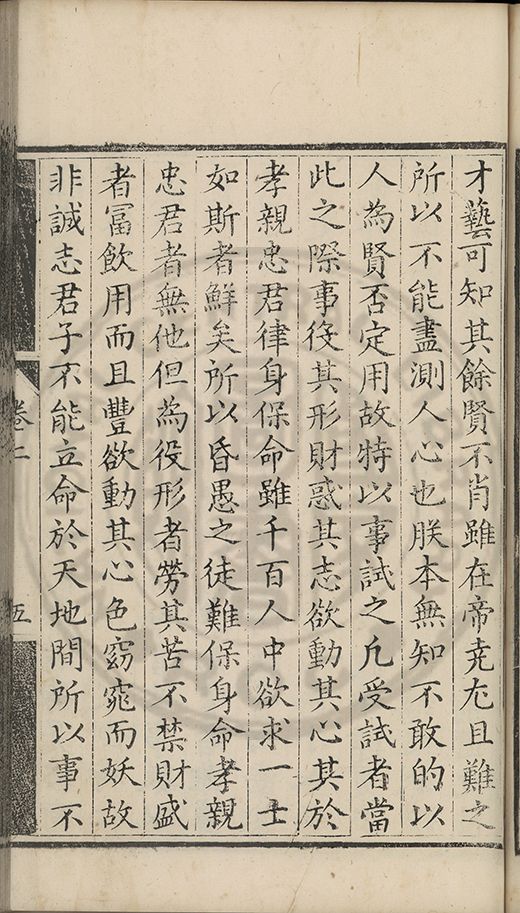 才藝可知其餘賢不肖雖在帝堯尤且難之
所以不能盡測人心也朕本無知不敢的以
人為賢否定用故特以事試之凡受試者當
此之際事役其形財惑其志欲動其心其於
孝親忠君律身保命雖千百人中欲求一士
如斯者鮮矣所以昏愚之徒難保身命孝親
忠君者無他但為役形者勞其苦不禁財盛
者冨飲用而且豐欲動其心色窈窕而妖故
非誠志君子不能立命於天地間所以事不
卷二
五